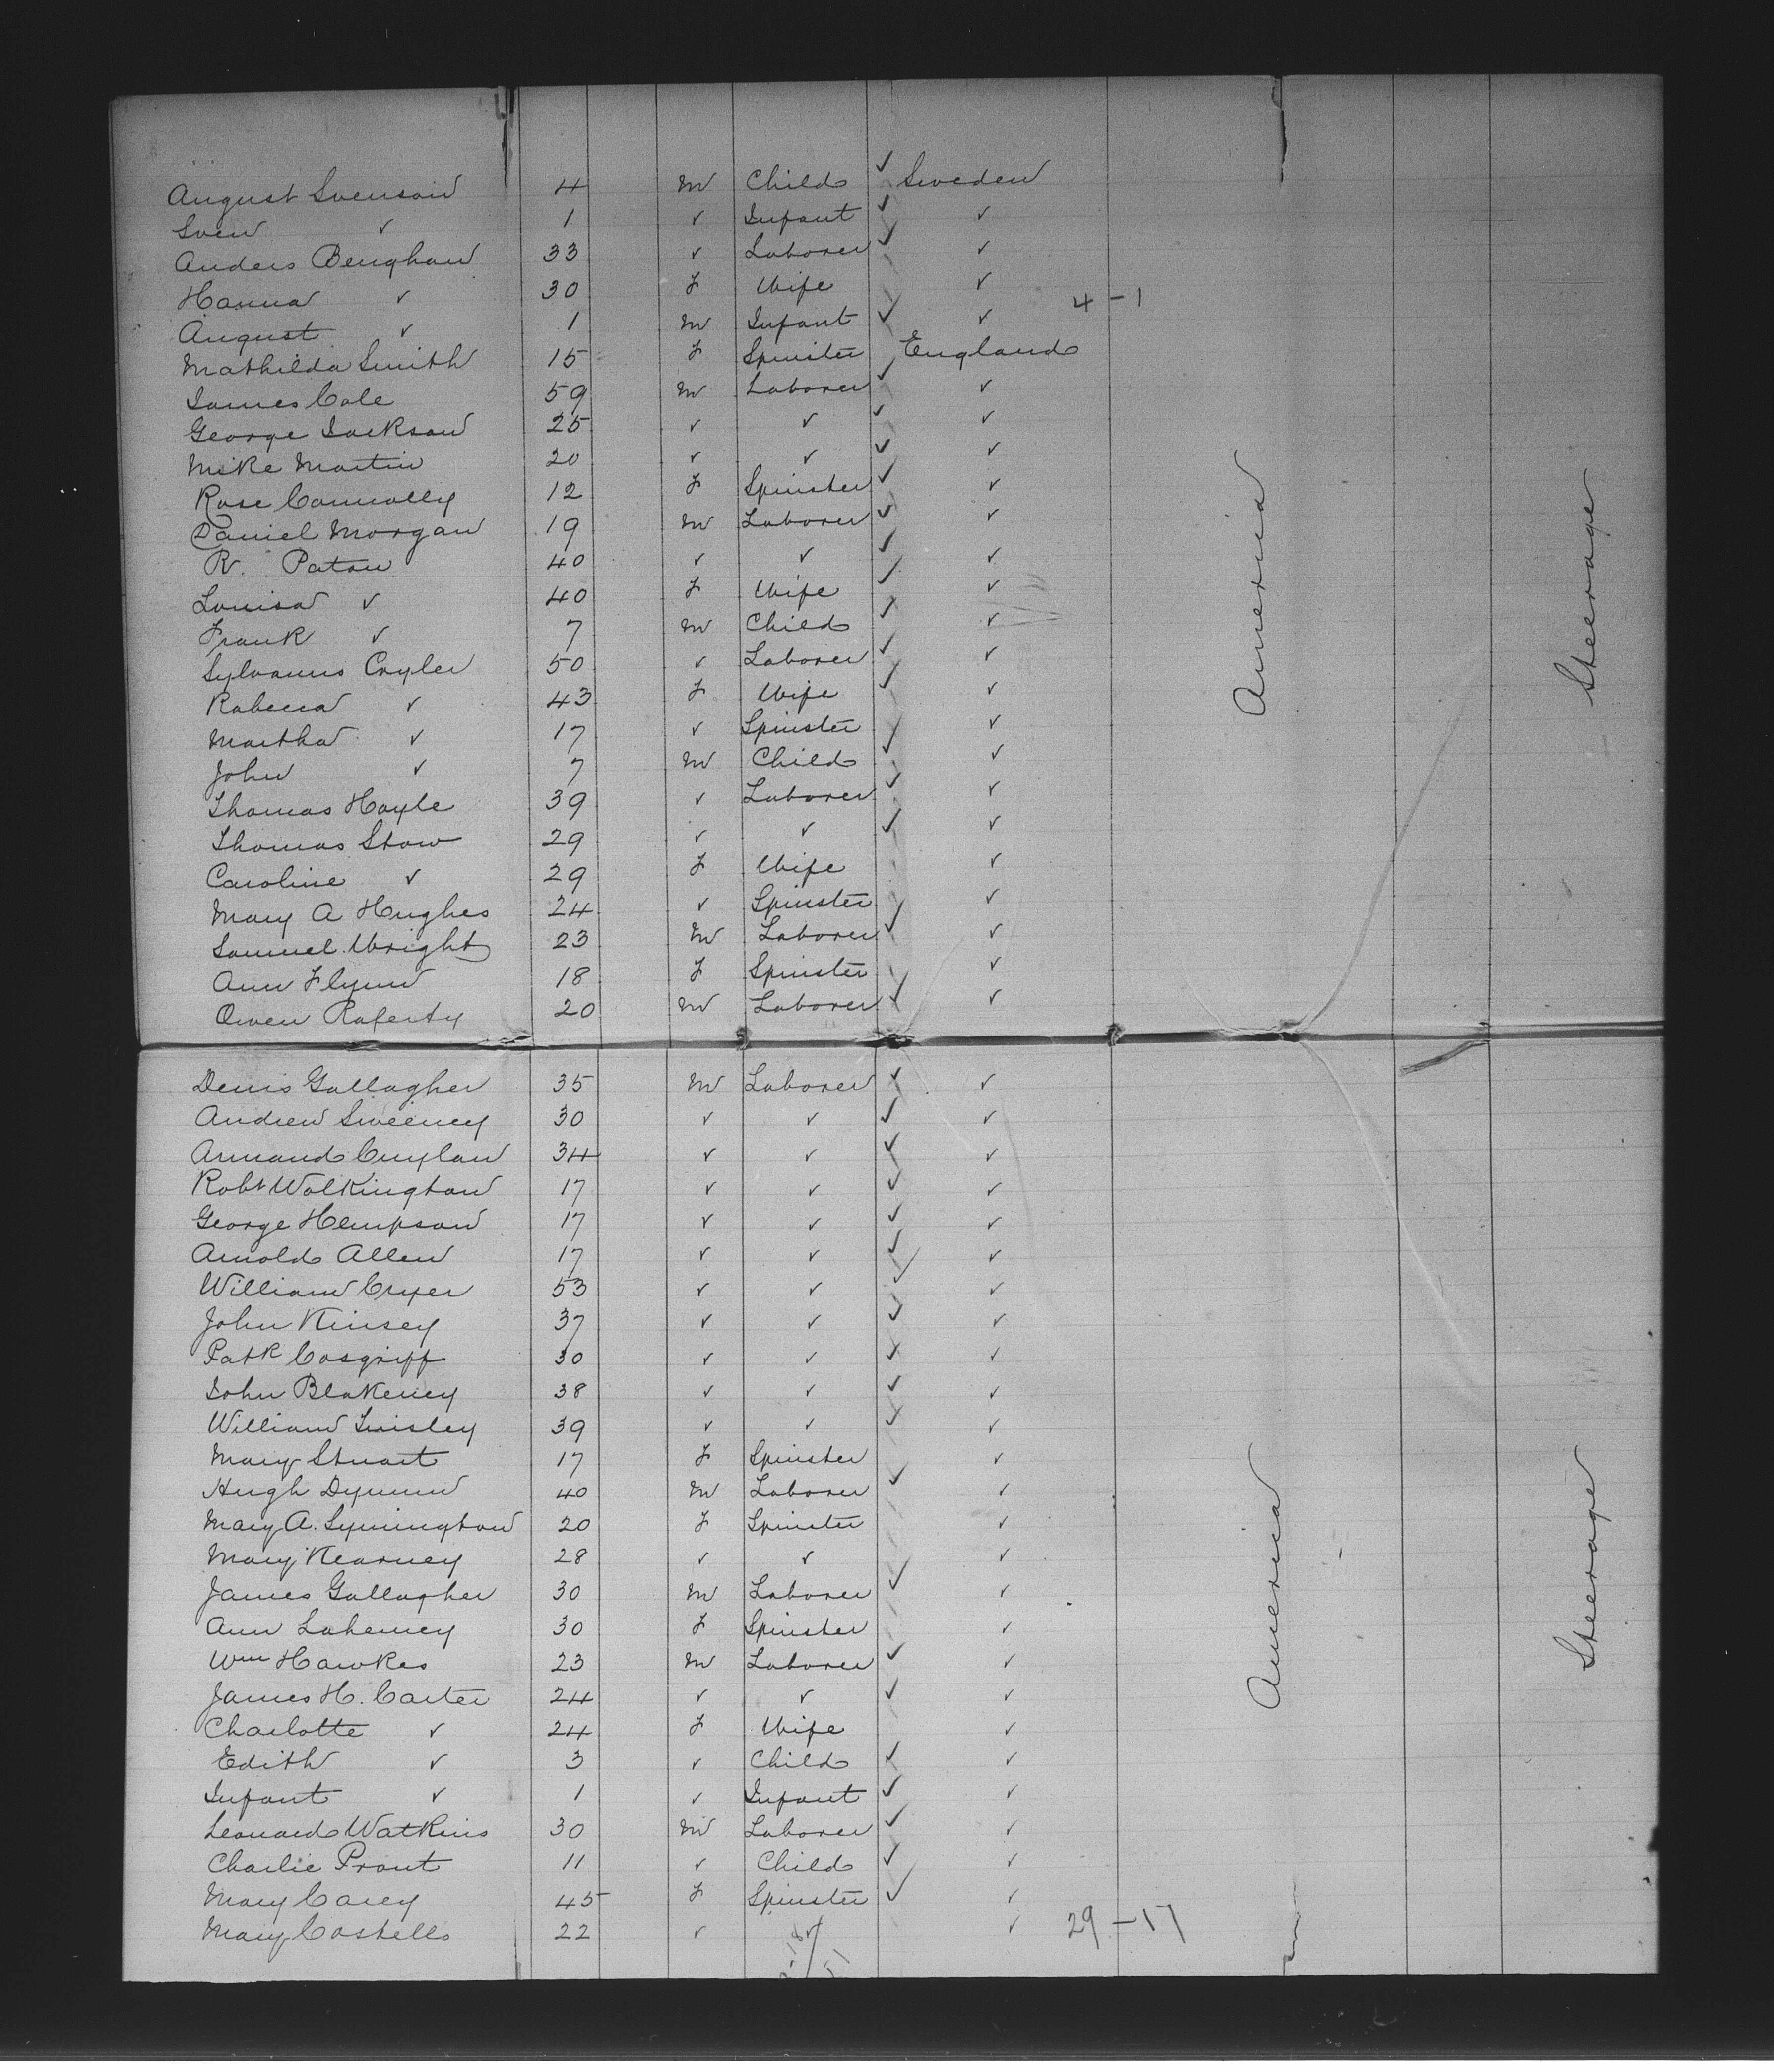 August Svenson 4 m Child ✓ Sweden
Sven ✓ 1 ✓ Infant ✓ ✓
Anders Benghan 33 ✓ Laborer ✓ ✓
Hanna ✓ 30 F Wife ✓
4-1
August ✓ 1 m Infant ✓ ✓
Mathilda Smith 15 F Spinster England
James Cole 59 m Laborer ✓ ✓
George Jackson 25 ✓ ✓ ✓ ✓
Mike Martin 20 ✓ ✓ ✓ ✓
Rose Connolly 12 F Spinster ✓ ✓
Daniel Morgan 19 m Laborer ✓ ✓
R. Paton 40 ✓ ✓ ✓ ✓
Louisa ✓ 40 F Wife ✓ ✓
Frank ✓ 7 m Child ✓ ✓
Sylvanus Cryler 50 ✓ Laborer ✓ ✓
Rebecca ✓ 43 F Wife ✓ ✓
Martha ✓ 17 ✓ Spinster ✓ ✓
John ✓ 7 m Child ✓ ✓
Thomas Hoyle 39 ✓ Laborer ✓ ✓
Thomas Stow 29 ✓ ✓ ✓ ✓
Caroline ✓ 29 F Wife ✓
Mary A Hughes 24 ✓ Spinster ✓
Samuel Wright 23 m Laborer ✓ ✓
Ann Flynn 18 F Spinster ✓
Owen Raferty 20 m Laborer ✓ ✓
America
Steerage
Denis Gallagher 35 m Laborer ✓ ✓
Andrew Sweeney 30 ✓ ✓ ✓ ✓
Armand 34 ✓ ✓ ✓ ✓
Robt Walkington 17 ✓ ✓ ✓ ✓
George Hempson 17 ✓ ✓ ✓ ✓
Arnold Allen 17 ✓ ✓ ✓ ✓
William Cryer 53 ✓ ✓ ✓ ✓
John Kinsey 37 ✓ ✓ ✓ ✓
Patk Cosgriff 30 ✓ ✓ ✓ ✓
John Blakeney 38 ✓ ✓ ✓ ✓
William Tinsley 39 ✓ ✓ ✓ ✓
Mary Stuart 17 F Spinster ✓
Hugh 40 m Laborer ✓ ✓
Mary A. Symington 20 F Spinster ✓
Mary Kearney 28 ✓ ✓ ✓
James Gallagher 30 m Laborer ✓ ✓
Ann 30 F Spinster ✓
Wm Hawkes 23 m Laborer ✓ ✓
James H. Carter 24 ✓ ✓ ✓ ✓
Charlotte ✓ 24 F Wife ✓
Edith ✓ 3 ✓ Child ✓ ✓
Infant ✓ 1 ✓ Infant ✓ ✓
Leonard Watkins 30 m Laborer ✓ ✓
Charlie Prout 11 ✓ Child ✓ ✓
Mary Carey 45 F Spinster ✓ ✓
Mary Costello 22 ✓ ✓ ✓
29-17
America
Steerage